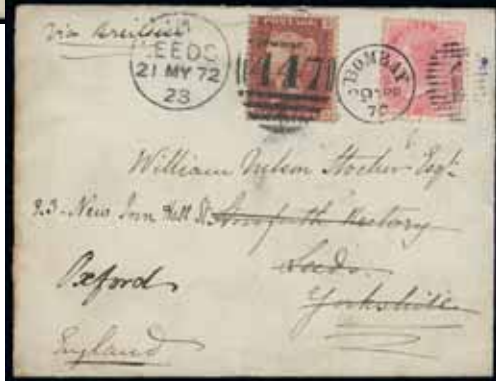 Via Brindisi
LEEDS
21 MY 72
23
447
BOMBAY
William Nelson Stocker Esqr
23 - New Inn Hall St Horsforth Rectory
Oxford Leeds
Yorkshire
England